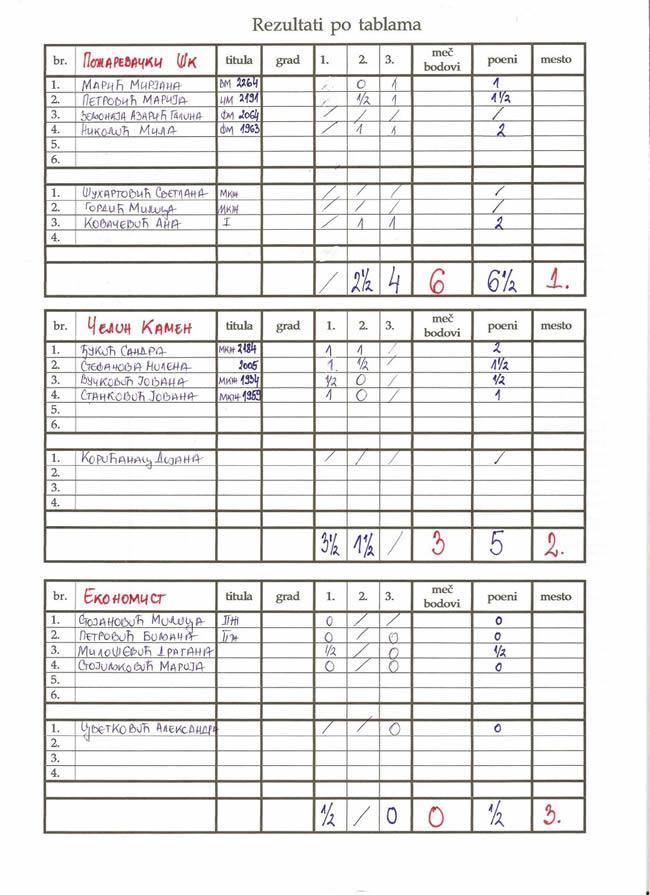 Rezultati po tablama
br. Пожаревачки Шк titula grad 1. 2. 3. meč bodovi poeni mesto
1. Марић Мирјана ВМ 2264 0 1 1
2. Петровић Марија ИМ 2191 1/2 1 1 1/2
3. Азарић Галина ФМ 2064 / / / /
4. Николић Мила ФМ 1963 / 1 1 2
5.
6.
1. Шухартовић Светлана МКЖ / / / /
2. Гордић Милица МКЖ / / / /
3. Ковачевић Ана I / 1 1 2
4.
/ 2 1/2 4 6 6 1/2 1.
br. Челин Камен titula grad 1. 2. 3. meč bodovi poeni mesto
1. Ђукић Сандра МКЖ 2184 1 1 / 2
2. Стефанова Милена 2005 1 1/2 / 1 1/2
3. Вучковић Јована МКЖ 1994 1/2 0 / 1/2
4. Станковић Јована МКЖ 1959 1 0 / 1
5.
6.
1. Корићанац Дијана / / / /
2.
3.
4.
3 1/2 1 1/2 / 3 5 2.
br. Економист titula grad 1. 2. 3. meč bodovi poeni mesto
1. Стојановић Милица 0 / / 0
2. Петровић Биљана 0 / 0 0
3. Милошевић Драгана 1/2 / 0 1/2
4. Стојиљковић Марија 0 / 0 0
5.
6.
1. Цветковић Александра / / 0 0
2.
3.
4.
1/2 / 0 0 1/2 3.